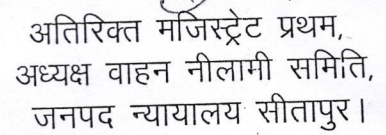 अतिरिक्त मजिस्ट्रेट प्रथम,
अध्यक्ष वाहन नीलामी समिति,
जनपद न्यायालय सीतापुर।